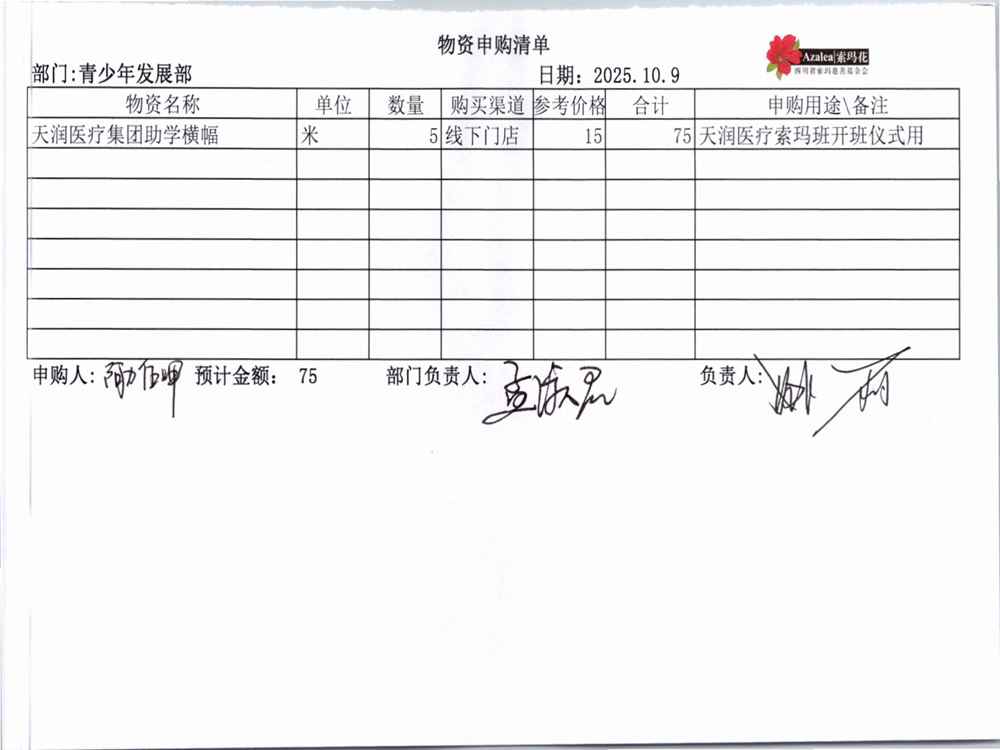 物资申购清单
Azalea 索玛花
四川省索玛慈善基金会
部门:青少年发展部 日期: 2025.10.9
物资名称 单位 数量 购买渠道 参考价格 合计 申购用途\备注
天润医疗集团助学横幅 米 5 线下门店 15 75 天润医疗索玛班开班仪式用
申购人: 预计金额: 75 部门负责人: 负责人: